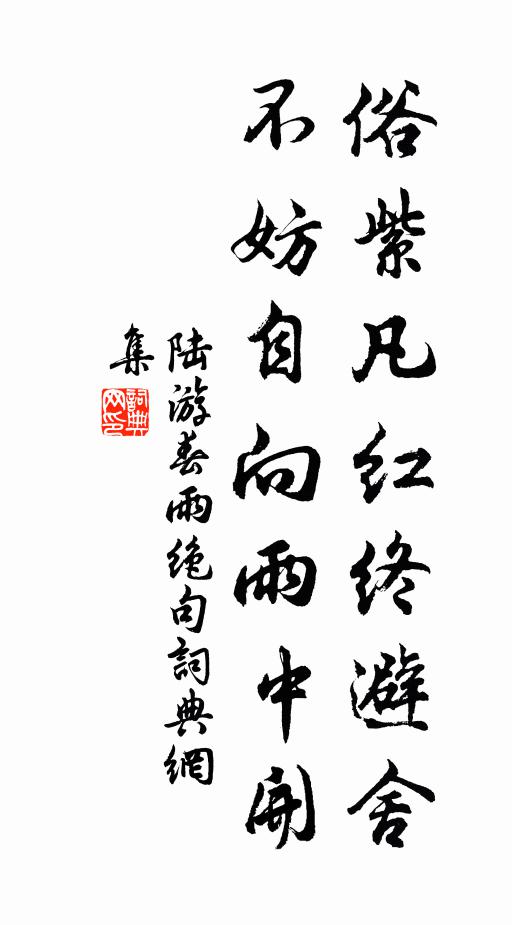 俗紫凡红终避舍
不妨自向雨中開
陆游春雨绝句詞典網
集
詞典网印